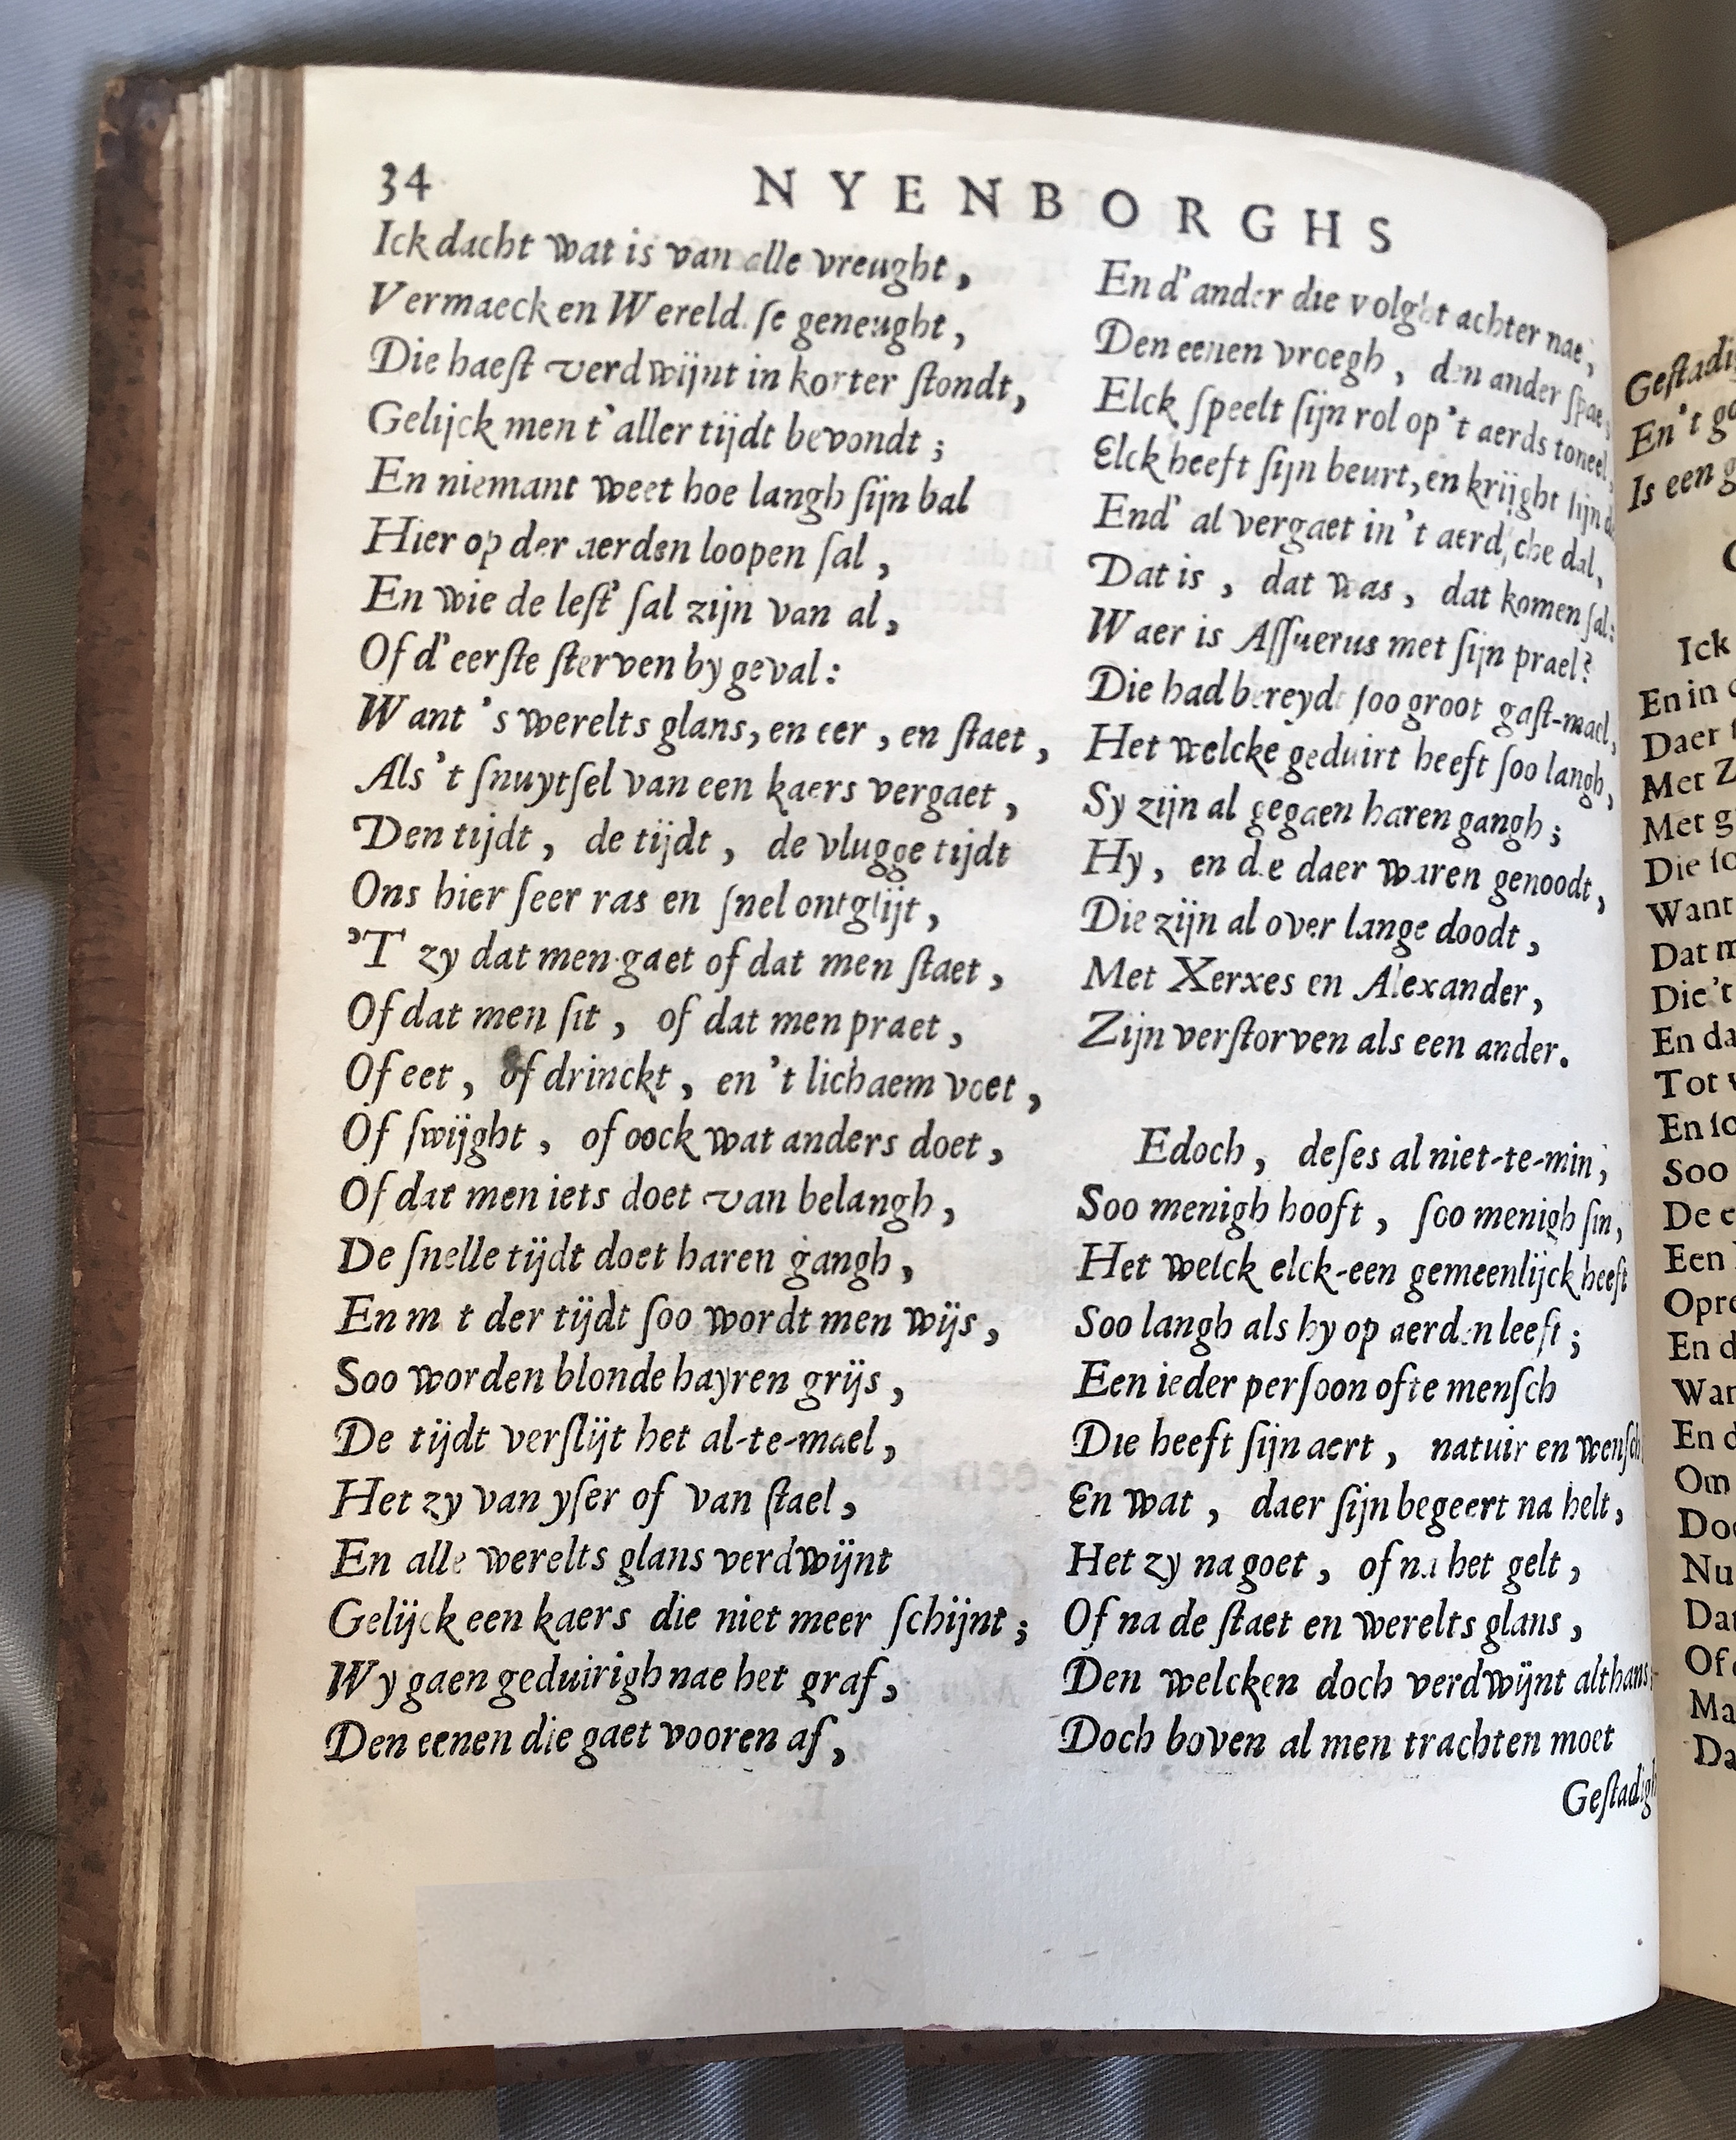 34 NYENBORGHS
Ick dacht wat is van alle vreught,
Vermaeck en Wereld.ſe geneught,
Die haeſt verdwijnt in korter ſtondt,
Gelijck men t'aller tijdt bevondt;
En niemant weet hoe langh ſijn bal
Hier op der aerden loopen ſal,
En wie de leſt' ſal zijn van al,
Of d'eerſte ſterven by geval:
Want 's werelts glans, en eer, en ſtaet,
Als 't ſnuytſel van een kaers vergaet,
Den tijdt, de tijdt, de vlugge tijdt
Ons hier ſeer ras en ſnel ontglijt,
'T zy dat men gaet of dat men ſtaet,
Of dat men ſit, of dat men praet,
Of eet, of drinckt, en 't lichaem voet,
Of ſwijght, of oock wat anders doet,
Of dat men iets doet van belangh,
De ſnelle tijdt doet haren gangh,
En m t der tijdt ſoo wordt men wijs,
Soo worden blonde hayren grijs,
De tijdt verſlijt het al-te-mael,
Het zy van yſer of van ſtael,
En alle werelts glans verdwijnt
Gelijck een kaers die niet meer ſchijnt;
Wy gaen geduirigh nae het graf,
Den eenen die gaet vooren af,
En d'ander die volght achter nae,
Den eenen vroegh, den ander ſpae,
Elck ſpeelt ſijn rol op 't aerds toneel,
Elck heeft ſijn beurt, en krijght ſijn
End' al vergaet in 't aerdſche dal,
Dat is, dat was, dat komen ſal:
Waer is Aſſuerus met ſijn prael?
Die had bereydt ſoo groot gaſt-mael,
Het welcke geduirt heeft ſoo langh,
Sy zijn al gegaen haren gangh;
Hy, en die daer waren genoodt,
Die zijn al over lange doodt,
Met Xerxes en Alexander,
Zijn verſtorven als een ander.
Edoch, deſes al niet-te-min,
Soo menigh hooft, ſoo menigh ſin,
Het welck elck-een gemeenlijck heeft
Soo langh als hy op aerden leeft;
Een ieder perſoon ofte menſch
Die heeft ſijn aert, natuir en wenſch
En wat, daer ſijn begeert na helt,
Het zy na goet, of na het gelt,
Of na de ſtaet en werelts glans,
Den welcken doch verdwijnt althans
Doch boven al men trachten moet
Geſtadigh
Geſtadi
En 't g
Is een g
Ick
En in
Daer
Met Z
Met g
Die
Want
Dat
Die 't
En da
Tot
En
Soo
De
Een
Opre
En
Wan
En
Om
Doc
Nu
Dat
Of
Ma
Da